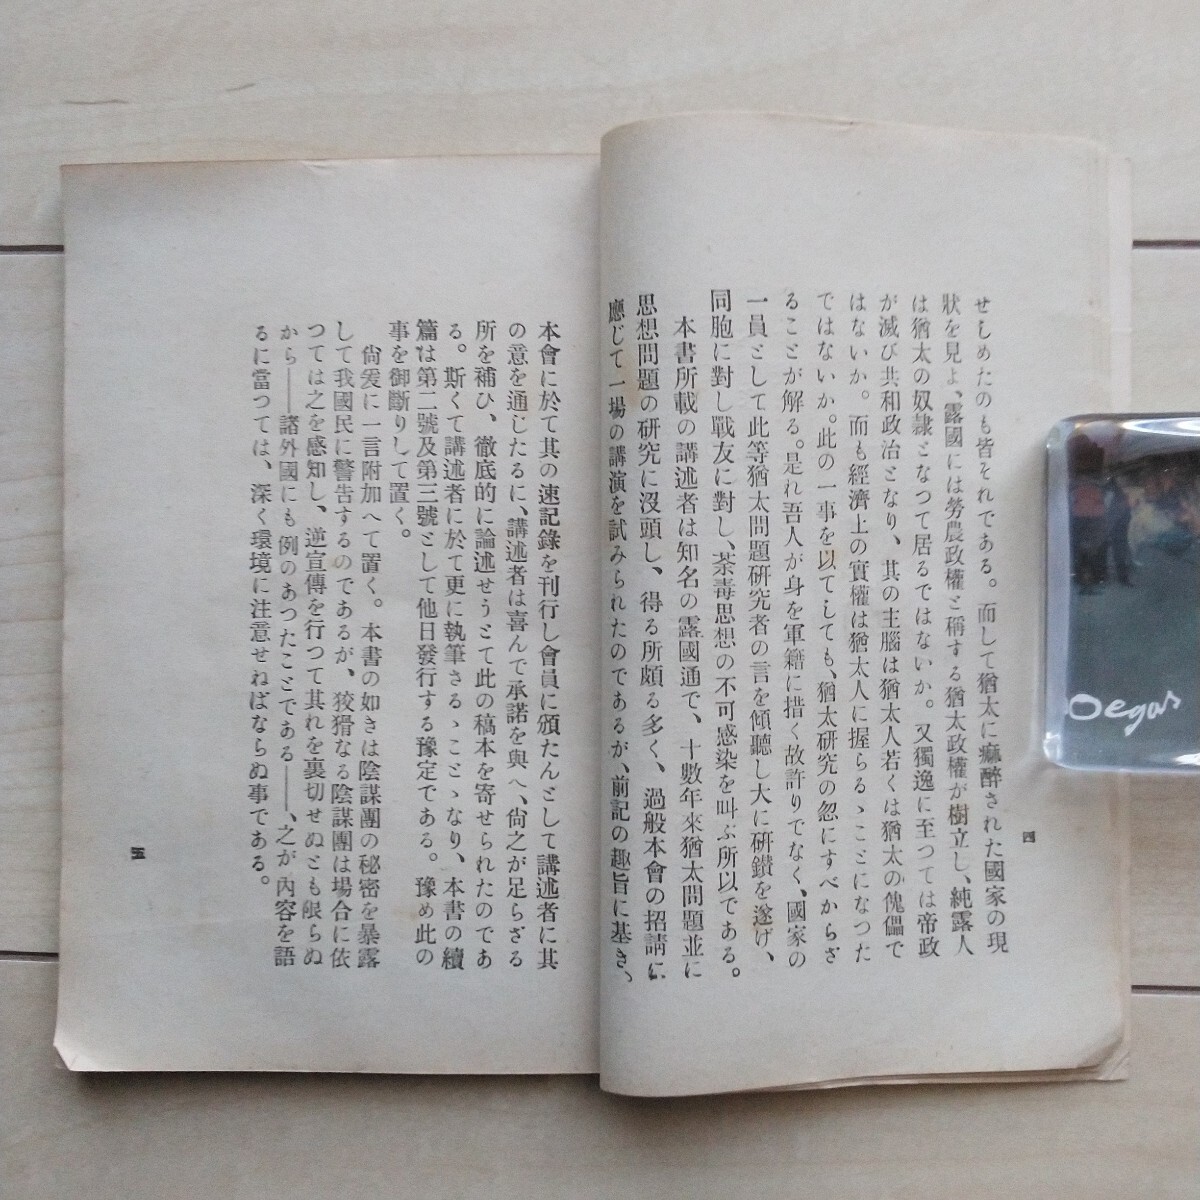 せしめたのも皆それである。而して猶太に痲醉された國家の現
狀を見よ、露國には勞農政權と稱する猶太政權が樹立し、純露人
は猶太の奴隷となつて居るではないか。又獨逸に至つては帝政
が滅び共和政治となり、其の主腦は猶太人若くは猶太の傀儡で
はないか。而も經濟上の實權は猶太人に握らるゝことになつた
ではないか。此の一事を以てしても、猶太研究の忽にすべからざ
ることが解る。是れ吾人が身を軍籍に措く故許りでなく、國家の
一員として此等猶太問題硏究者の言を傾聽し大に硏鑽を遂げ、
同胞に對し戰友に對し、荼毒思想の不可感染を叫ぶ所以である。
本書所載の講述者は知名の露國通で、十數年來猶太問題並に
思想問題の硏究に沒頭し、得る所頗る多く、過般本會の招請に
應じて一場の講演を試みられたのであるが、前記の趣旨に基き、
四
本會に於て其の速記錄を刊行し會員に頒たんとして講述者に其
の意を通じたるに、講述者は喜んで承諾を與へ、尙之が足らざる
所を補ひ、徹底的に論述せうとて此の稿本を寄せられたのであ
る。斯くて講述者に於て更に執筆さるゝことゝなり、本書の續
篇は第二號及第三號として他日發行する豫定である。豫め此の
事を御斷りして置く。
尙爰に一言附加へて置く。本書の如きは陰謀團の秘密を暴露
して我國民に警吿するのであるが、狡猾なる陰謀團は場合に依
つては之を感知し、逆宣傳を行つて其れを裏切せぬとも限らぬ
から——諸外國にも例のあつたことである——、之が內容を語
るに當つては、深く環境に注意せねばならぬ事である。
五
Degas